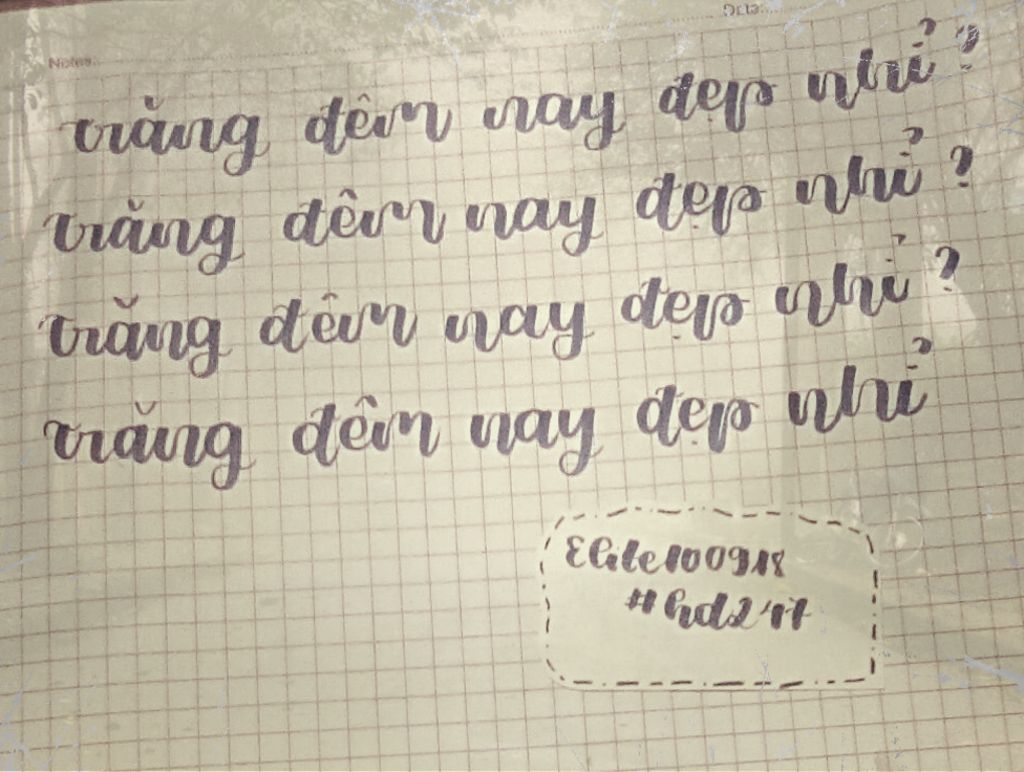 Date:
Notes:
trăng đêm nay đẹp nhỉ?
trăng đêm nay đẹp nhỉ?
trăng đêm nay đẹp nhỉ?
trăng đêm nay đẹp nhỉ
Elite100918